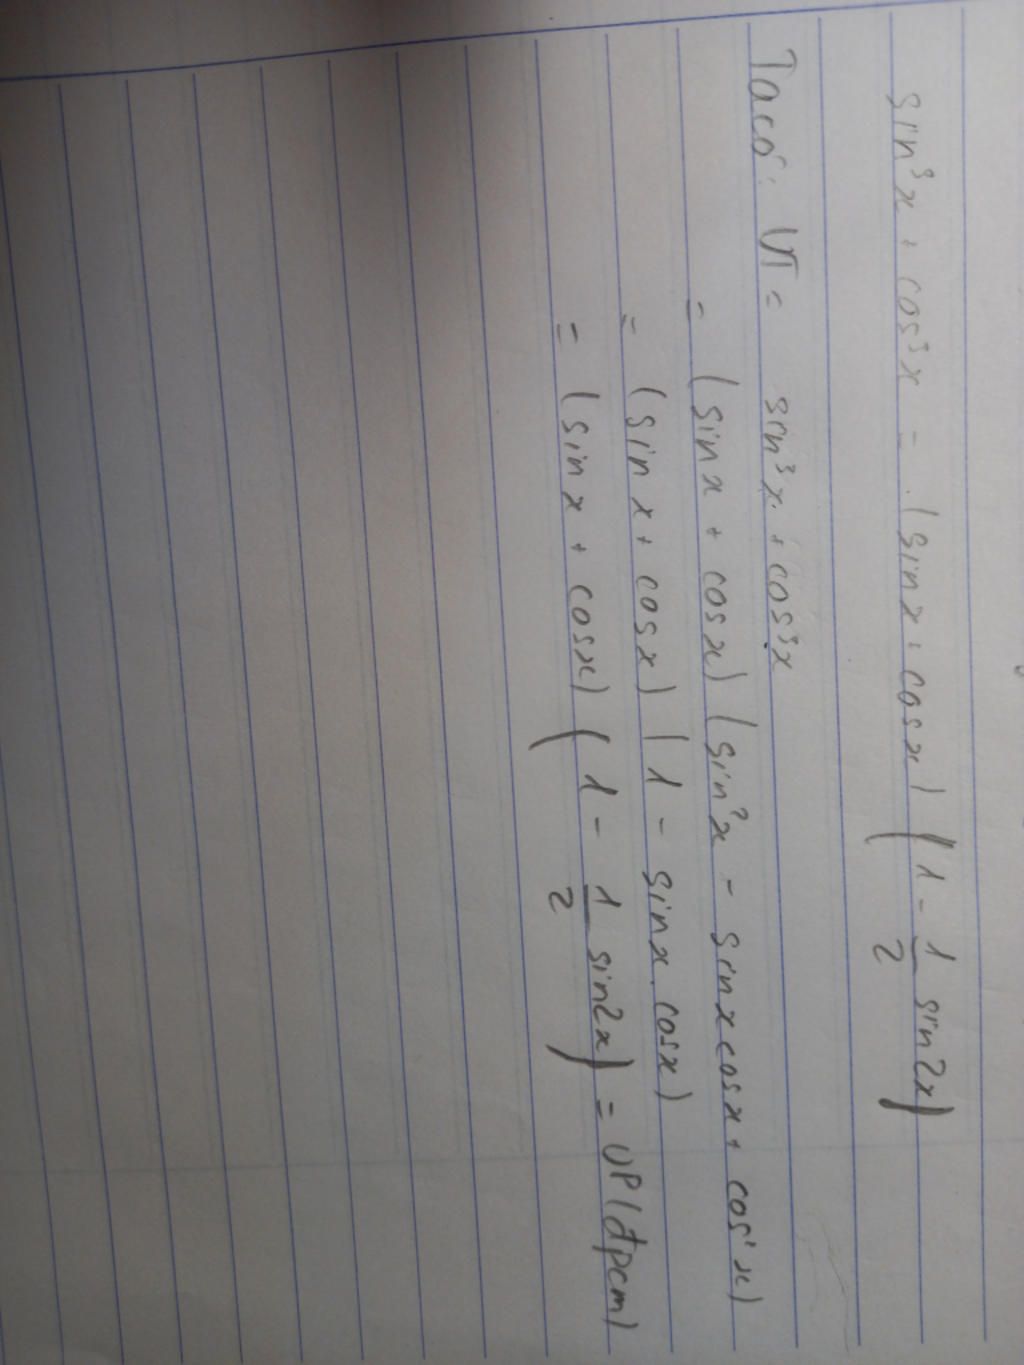 sin³x + cos³x = (sinx + cosx) (1 - 1/2 sin2x)
Ta có: VT = sin³x + cos³x
= (sinx + cosx) (sin²x - sinxcosx + cos²x)
= (sinx + cosx) (1 - sinx.cosx)
= (sinx + cosx) (1 - 1/2 sin2x) = VP (đpcm)